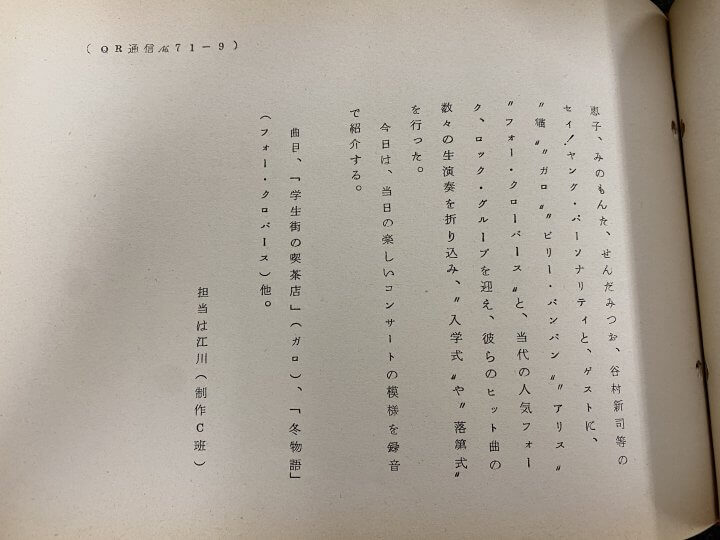 恵子、みのもんた、せんだみつお、谷村新司等の
セイ!ヤング・パーソナリティと、ゲストに、
〃猫〃〃ガロ〃〃ビリー・バンバン〃〃アリス〃
〃フォー・クローバース〃と、当代の人気フォー
ク、ロック・グループを迎え、彼らのヒット曲の
数々の生演奏を折り込み、〃入学式〃や〃落第式〃
を行った。
今日は、当日の楽しいコンサートの模様を録音
で紹介する。
曲目、「学生街の喫茶店」(ガロ)、「冬物語」
(フォー・クロバース)他。
担当は江川(制作C班)
(QR通信№71-9)